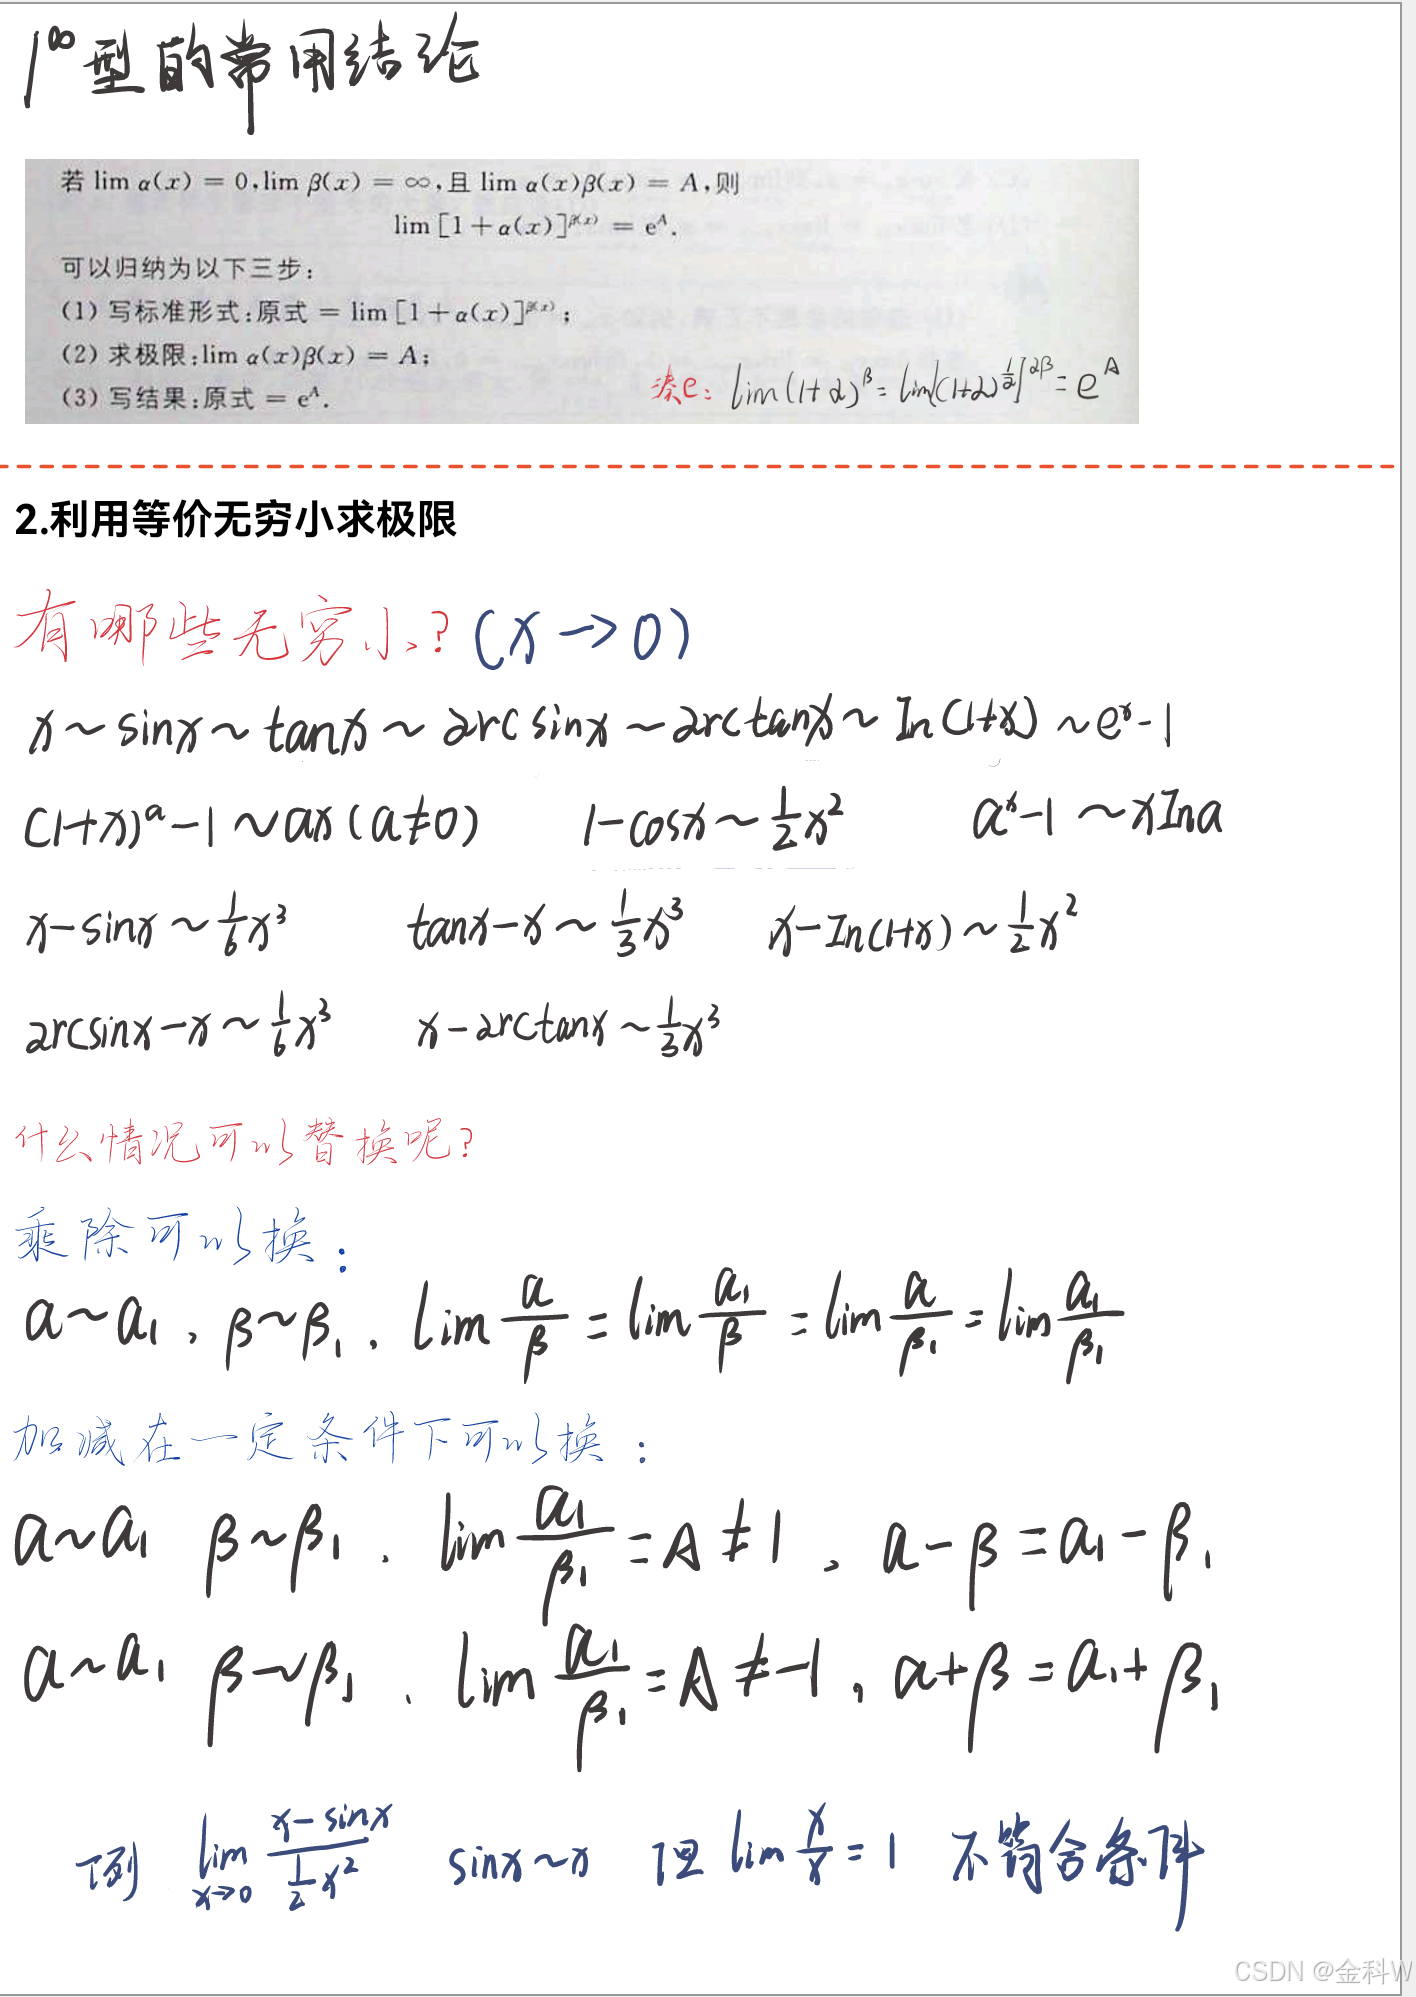 1^∞型的常用结论
若 lim α(x) = 0, lim β(x) = ∞, 且 lim α(x)β(x) = A, 则
lim [1 + α(x)]^β(x) = e^A.
可以归纳为以下三步:
(1) 写标准形式:原式 = lim [1 + α(x)]^β(x);
(2) 求极限:lim α(x)β(x) = A;
(3) 写结果:原式 = e^A.
凑e: lim(1+α)^β = lim[(1+α)^(1/α)]^αβ = e^A
2.利用等价无穷小求极限
有哪些无穷小? (x → 0)
x ~ sinx ~ tanx ~ arcsinx ~ arctanx ~ In(1+x) ~ e^x - 1
(1+x)^a - 1 ~ ax (a≠0) 1-cosx ~ 1/2 x^2 a^x - 1 ~ xIna
x - sinx ~ 1/6 x^3 tanx - x ~ 1/3 x^3 x - In(1+x) ~ 1/2 x^2
arcsinx - x ~ 1/6 x^3 x - arctanx ~ 1/3 x^3
什么情况可以替换呢?
乘除可以换:
α ~ α₁, β ~ β₁, lim α/β = lim α₁/β = lim α/β₁ = lim α₁/β₁
加减在一定条件下可以换:
α ~ α₁ β ~ β₁, lim α₁/β₁ = A ≠ 1, α - β = α₁ - β₁
α ~ α₁ β ~ β₁, lim α₁/β₁ = A ≠ -1, α + β = α₁ + β₁
例 lim x→0 (x - sinx)/(1/2 x^2) sinx ~ x 但 lim x/x = 1 不符合条件
CSDN @金科W